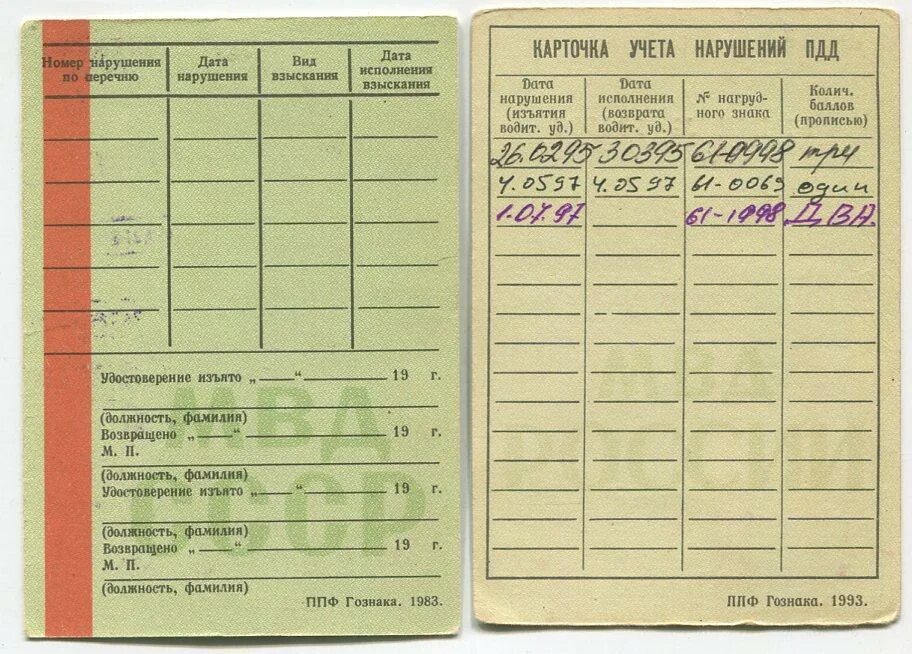 Номер нарушения по перечню
Дата нарушения
Вид взыскания
Дата исполнения взыскания
Удостоверение изъято „ “ 19 г.
(должность, фамилия)
Возвращено „ “ 19 г.
М. П.
(должность, фамилия)
Удостоверение изъято „ “ 19 г.
(должность, фамилия)
Возвращено „ “ 19 г.
М. П.
(должность, фамилия)
МВД
СССР
ППФ Гознака. 1983.
КАРТОЧКА УЧЕТА НАРУШЕНИЙ ПДД
Дата нарушения (изъятия водит. уд.)
Дата исполнения (возврата водит. уд.)
№ нагруд- ного знака
Колич. баллов (прописью)
26.0295 30395 61-0998 три
4.0597 4.0597 61-0069 один
1.07.97 61-1998 ДВА.
ППФ Гознака. 1993.